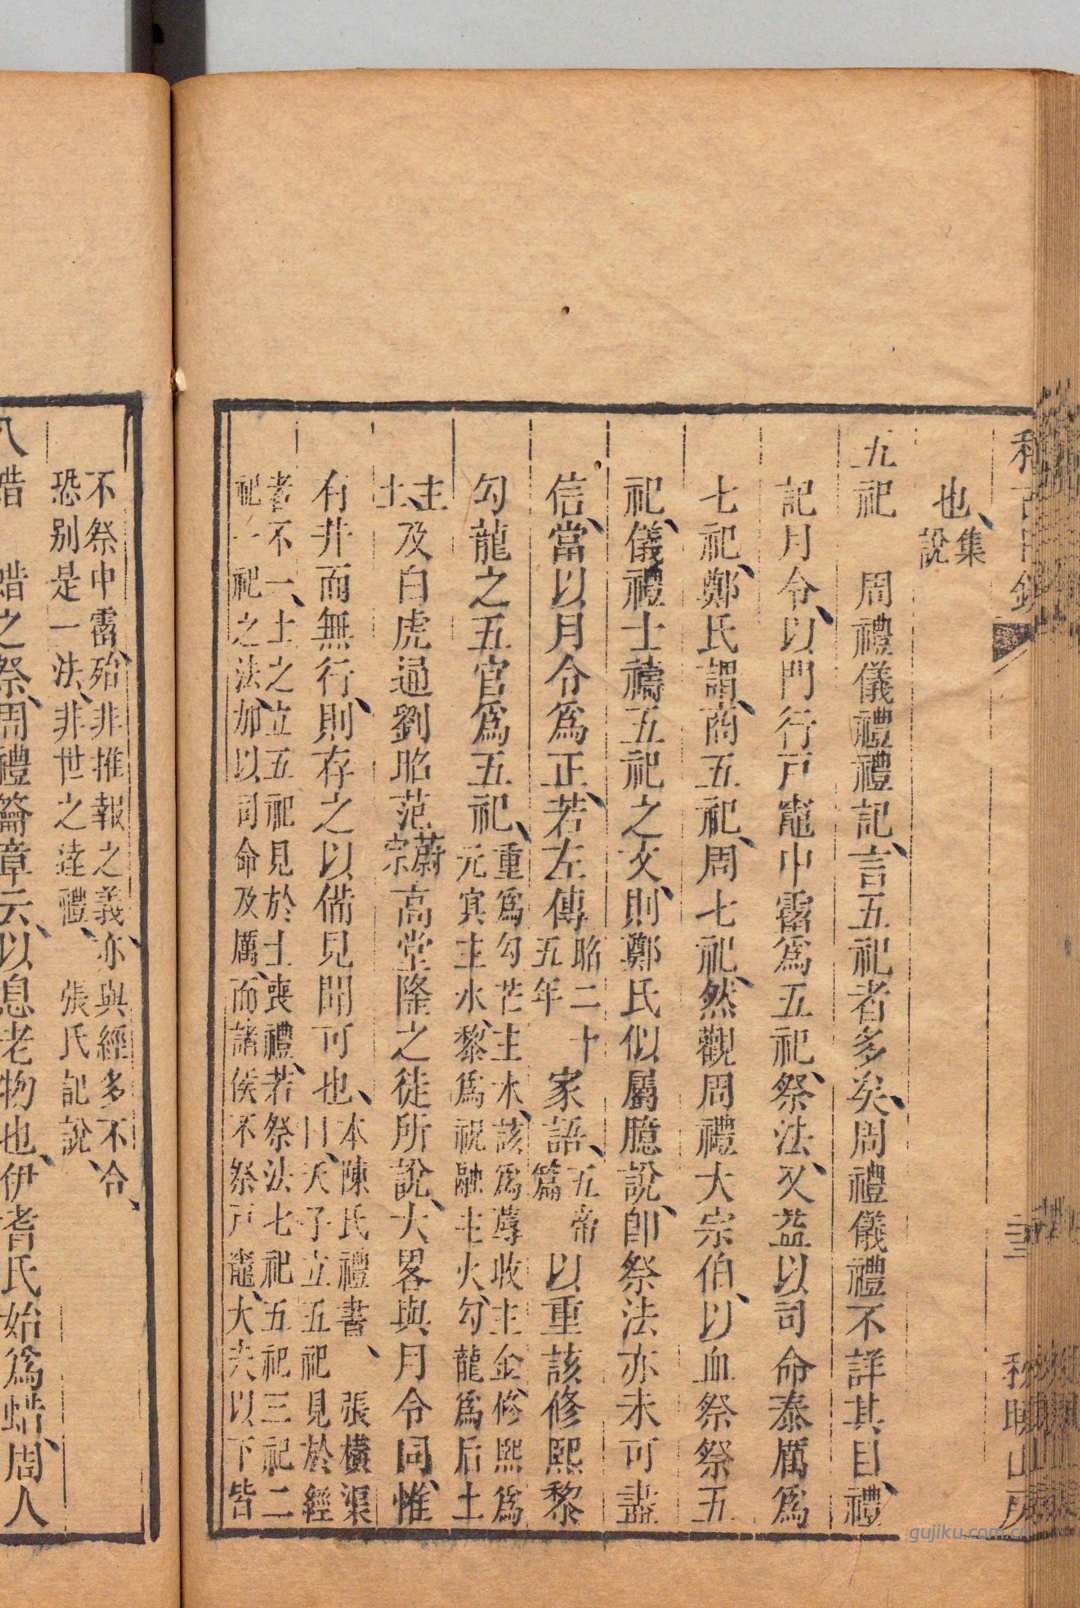 也、集說
五祀　周禮儀禮禮記、言五祀者多矣、周禮儀禮不詳其目、禮
記月令、以門行戸竈中霤爲五祀、祭法、又益以司命泰厲爲
七祀、鄭氏謂、商五祀、周七祀、然觀周禮大宗伯、以血祭祭五
祀、儀禮士禱五祀之文、則鄭氏似屬臆說、卽祭法亦未可盡
信、當以月令爲正、若左傳昭二十五年家語、五帝篇以重該修熙黎
勾龍之五官爲五祀、重爲勾芒主木、該爲蓐收主金、修熙爲元㝠主水、黎爲祝融主火、勾龍爲后土
主土、及白虎通劉昭范蔚宗高堂隆之徒所說、大畧與月令同、惟
有井而無行、則存之以備見聞可也、本陳氏禮書、　張橫渠曰、天子立五祀見於經
者不一、土之立五祀見於士喪禮、若祭法七祀五祀三祀二
祀一祀之法、加以司命及厲、而諸侯不祭戸竈、大夫以下皆
不祭中霤、殆非推報之義、亦與經多不合、
恐别是一法、非世之逹禮、　張氏記說、
八蜡　蜡之祭、周禮籥章云、以息老物也、伊耆氏始爲蜡、周人
秋聯山房
gujiku.com.cn